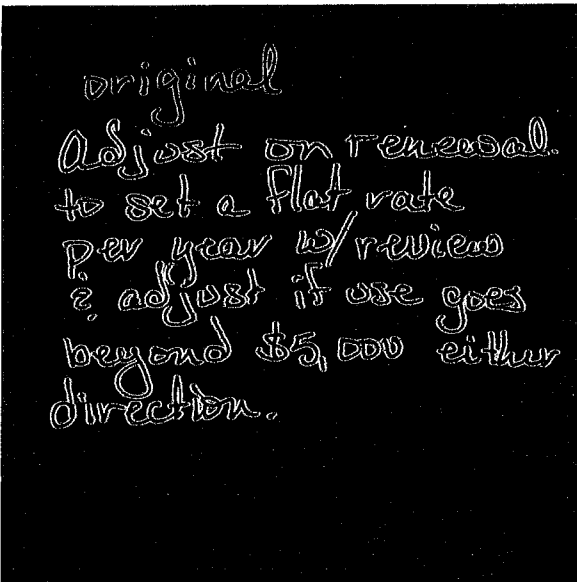 original
Adjust on renewal.
to set a flat rate
per year w/ review
& adjust if use goes
beyond $5,000 either
direction.